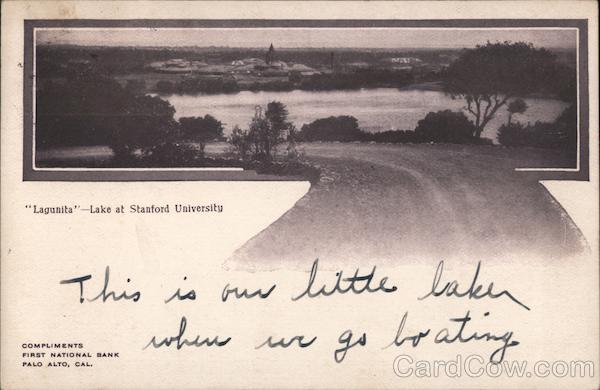 "Lagunita"—Lake at Stanford University
This is our little lake
when we go boating
COMPLIMENTS
FIRST NATIONAL BANK
PALO ALTO, CAL.
CardCow.com